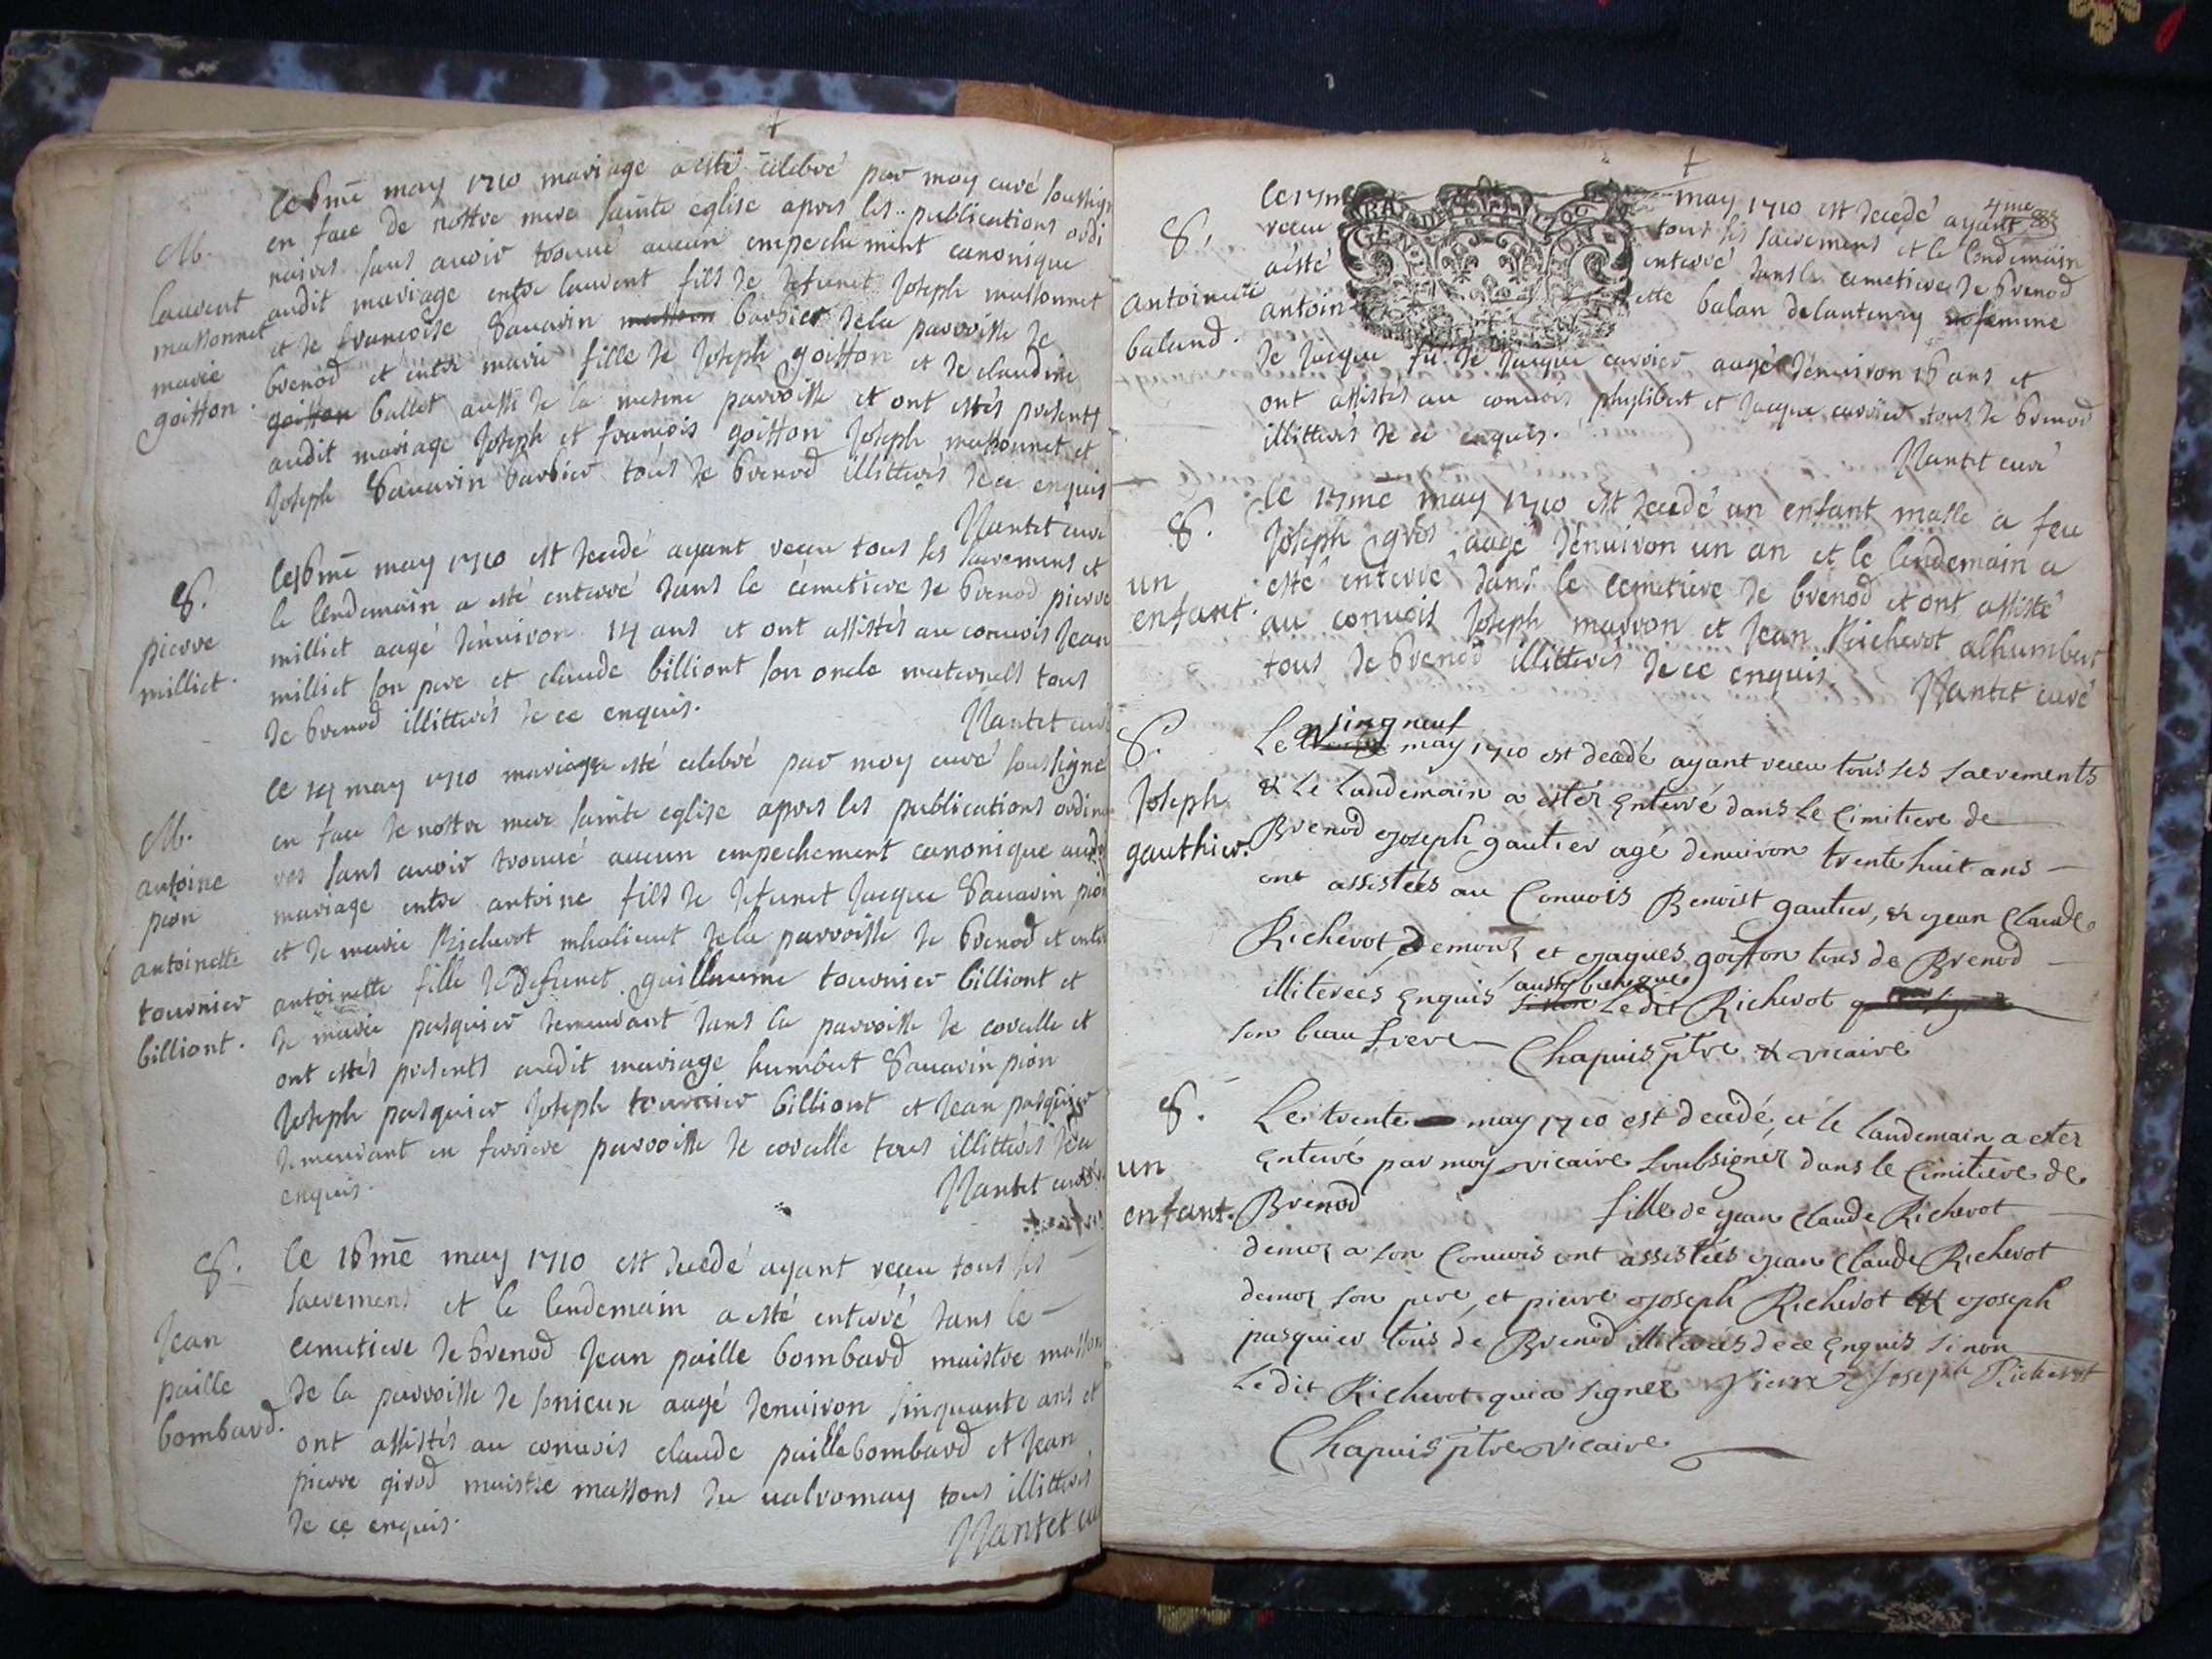 M.
laurent
massonnet
marie
goitton.
le 6me may 1710 mariage a esté celebré par moy curé soussigné
en face de nostre mere sainte eglise apres les publications ordi
naires sans avoir trouué aucun empechement canonique
audit mariage entre laurent fils de defunct Joseph massonnet
et de francoise Sauarin barbier de la parroisse de
brenod et entre marie fille de Joseph goitton et de claudine
goitton ballet aussi de la mesme parroisse et ont estés presents
audit mariage Joseph et francois goitton Joseph massonnet et
Joseph Sauarin barbier tous de brenod illitterés de ce enquis
Nantet curé
S.
pierre
milliet.
le 6me may 1710 est decedé ayant receu tous les sacremens et
le lendemain a esté enterré dans le cemetiere de brenod pierre
milliet aagé denuiron 14 ans et ont assistés au conuois Jean
milliet son pere et claude billiont son oncle maternell tous
de brenod illitterés de ce enquis.
Nantet curé
M.
antoine
pion
antoinette
tournier
billiont.
le 14 may 1710 mariage esté celebré par moy curé soussigné
en face de nostre mere sainte eglise apres les publications ordinai
res sans auoir trouué aucun empechement canonique audit
mariage entre antoine fils de defunct Jacque Sauarin pion
et de marie Richerot de la parroisse de brenod et entre
antoinette fille de defunct guillaume tournier billiont et
de marie pasquier demeurant dans la parroisse de corcelle et
ont estés presents audit mariage humbert Sauarin pion
Joseph pasquier Joseph tournier billiont et Jean pasquier
demeurant en ferriere parroisse de corcelle tous illitterés de ce
enquis.
Nantet curé
S.
Jean
paille
bombard.
le 16me may 1710 est decedé ayant receu tous les
sacremens et le lendemain a esté enterré dans le
cemetiere de brenod Jean paille bombard maistre masson
de la parroisse de sonieux aagé denuiron sinquante ans et
ont assistés au conuois claude paille bombard et Jean
pierre girod maistre massons du ualromay tous illitterés
de ce enquis.
Nantet curé
S.
antoinette
baland.
le 17me may 1710 est decedé ayant
4me
receu tous les sacremens et le lendemain
a esté enterré dans le cemetiere de brenod
antoinette balan delantenay femme
de Jacque fu de Jacque carrier aagé denuiron 18 ans et
ont assistés au conuois phylibert et Jacque carrier tous de brenod
illitterés de ce enquis.
Nantet curé
S.
un
enfant.
le 17me may 1710 est decedé un enfant masle a feu
Joseph gros aagé denuiron un an et le lendemain a
esté enterré dans le cemetiere de brenod et ont assisté
au conuois Joseph marron et Jean Richerot alhumbert
tous de brenod illitterés de ce enquis.
Nantet curé
S.
Joseph
gauthier.
Le vingneuf may 1710 est decedé ayant receu tous les sacrements
& le Landemain a ester enterré dans le Cimitiere de
Brenod Joseph gautier agé denuiron trente huit ans
ont assistées au Conuois Benoist gautier, & Jean Claude
Richerot Demouz et Jaques goiton tous de Brenod
illiterées enquis aussy bien que ledit Richerot
son beau frere Chapuis ptre & vicaire
S.
un
enfant.
Le trente may 1710 est decedé, et le landemain a ester
enterré par moy vicaire soubsigner dans le Cimitiere de
Brenod fille de Jean Claude Richerot
demoz a son Conuois ont assistées Jean Claude Richerot
demoz son pere, et pierre Joseph Richerot et Joseph
pasquier tous de Brenod illiterées de ce enquis sinon
Ledit Richerot qui a signer Pierre Joseph Richerot
Chapuis ptre vicaire